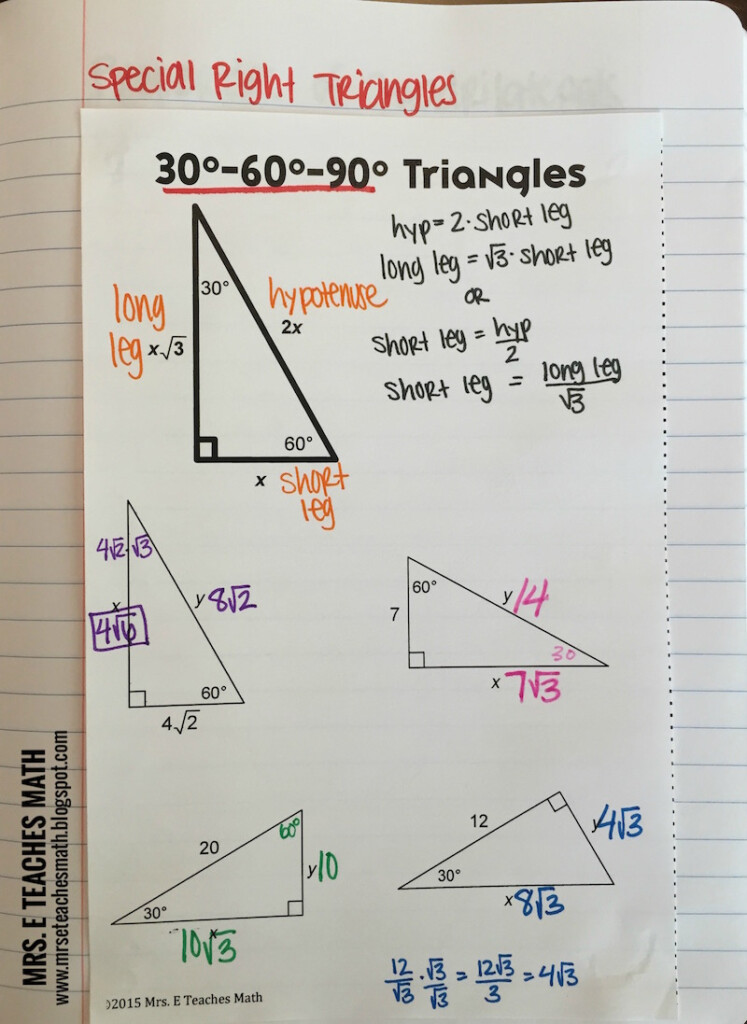 Special Right Triangles
30°-60°-90° Triangles
hyp = 2 · short leg
long leg = √3 · short leg
OR
short leg = hyp/2
short leg = long leg/√3
30°
long leg
x√3
hypotenuse
2x
60°
x
short leg
4√2·√3
x
4√6
y 8√2
60°
4√2
60°
7
y 14
30
x 7√3
20
60°
y 10
30°
x
10√3
12
y 4√3
30°
x 8√3
12/√3 · √3/√3 = 12√3/3 = 4√3
©2015 Mrs. E Teaches Math
MRS. E TEACHES MATH
www.mrseteachesmath.blogspot.com